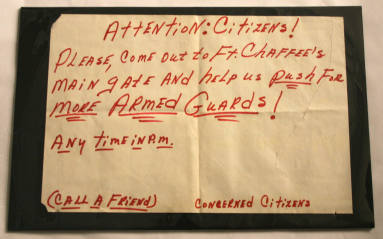 Attention: Citizens!
Please, come out to Ft. Chaffee's
main gate and help us push for
more Armed Guards!
Any time in am.
(Call A Friend) Concerned Citizens